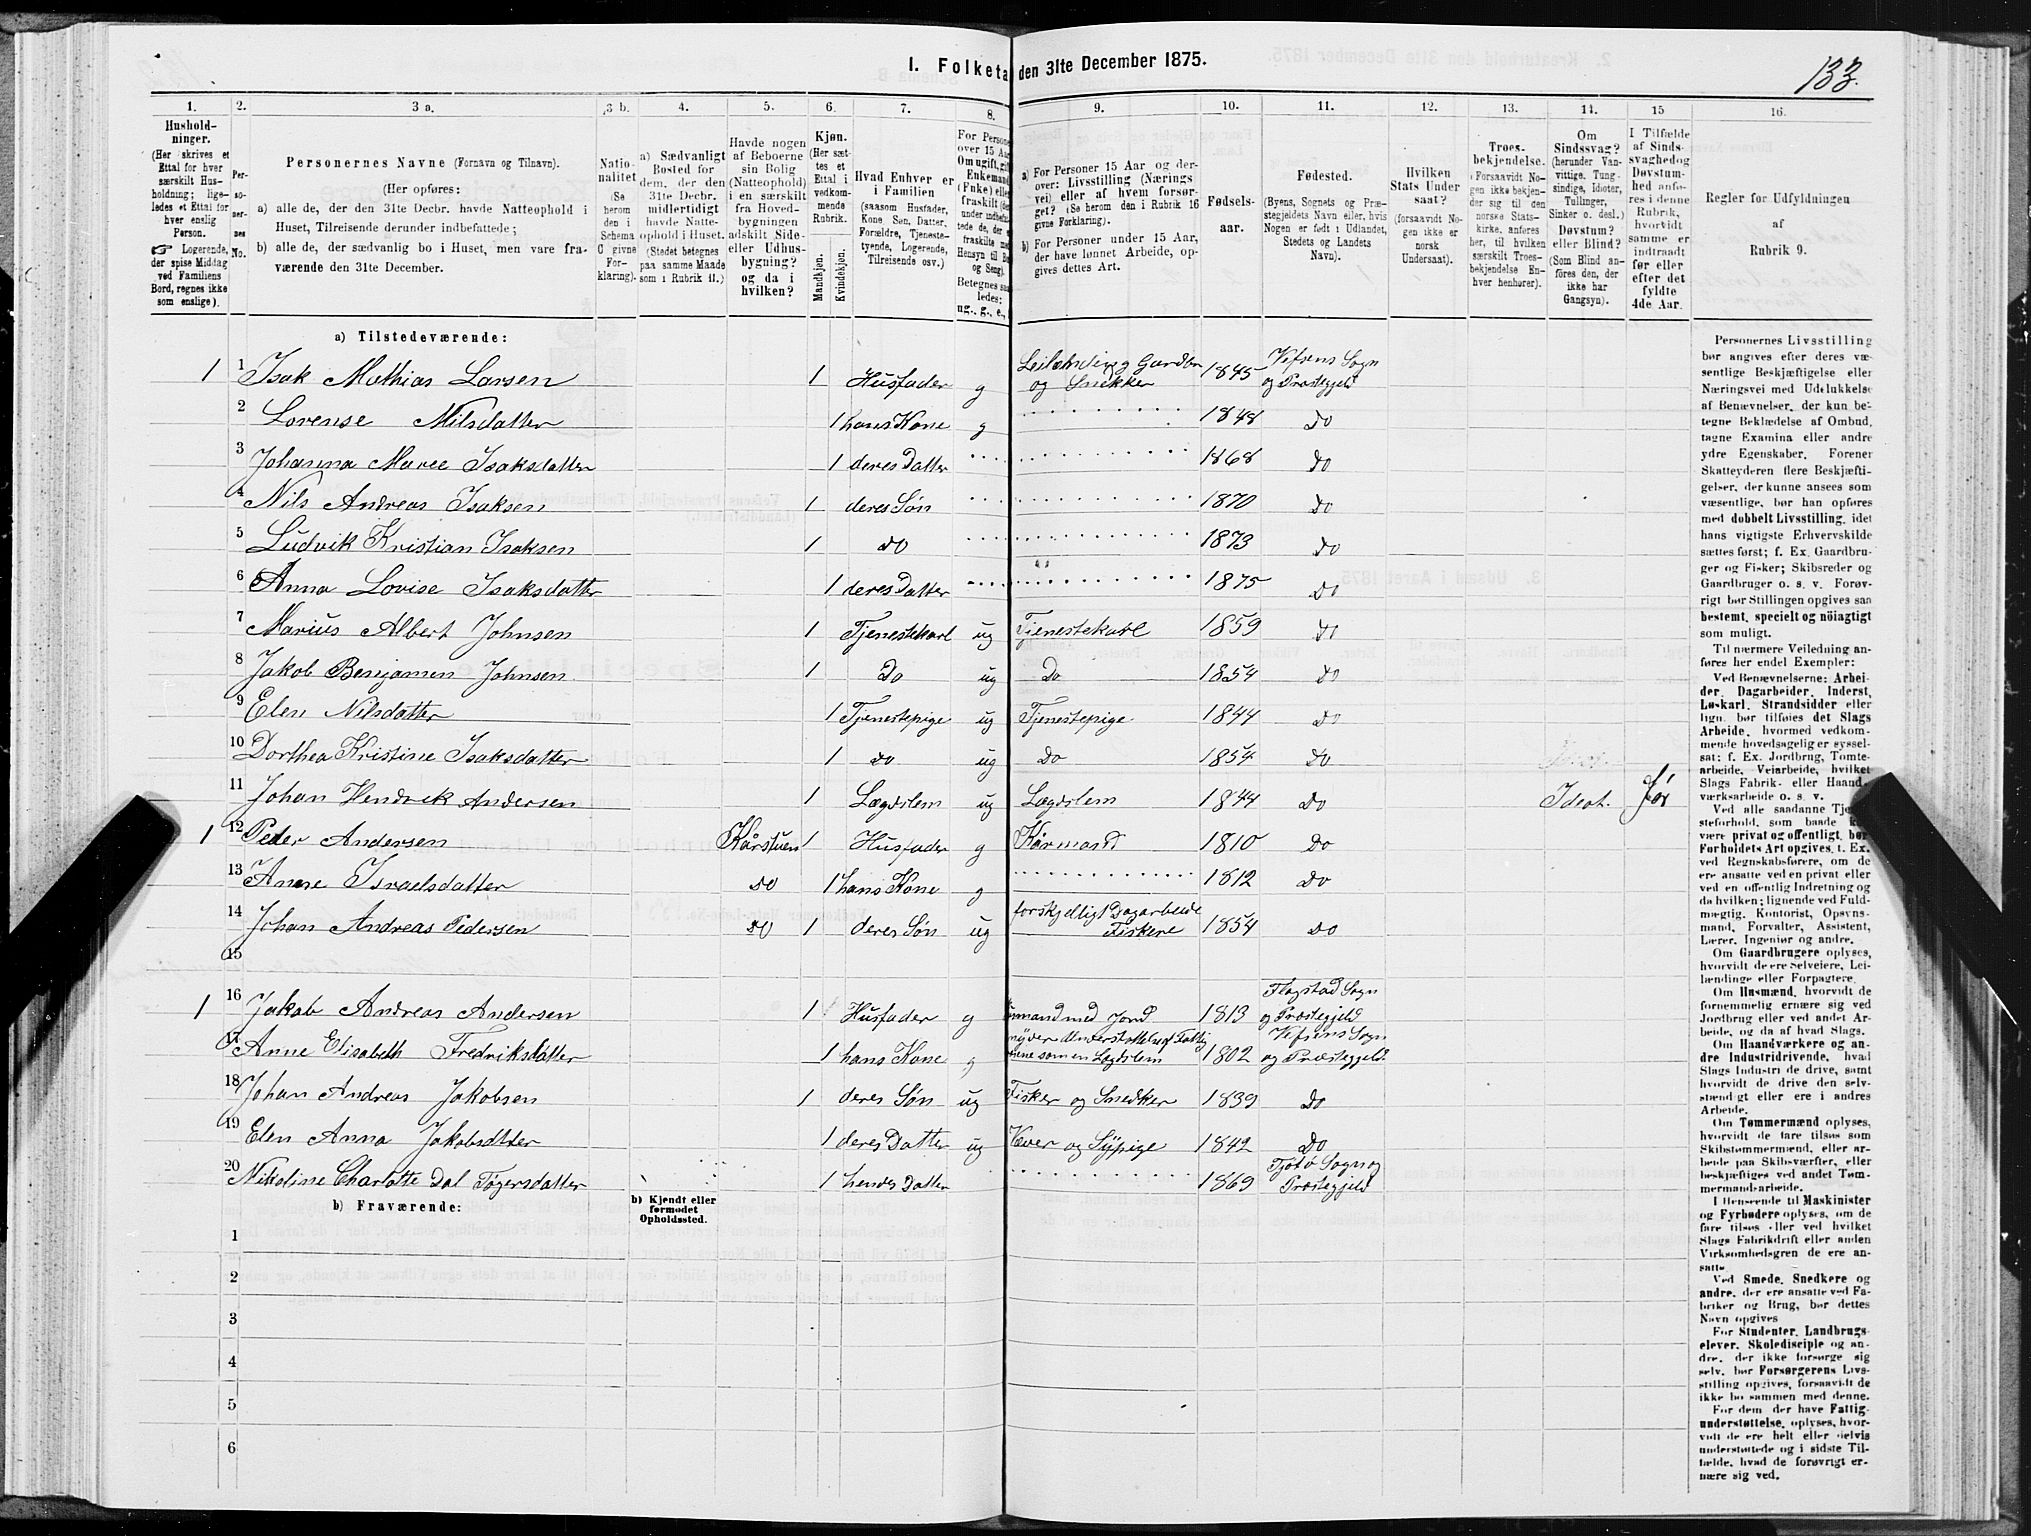 I. Folketa den 31te December 1875.
133.
1. 2. 3 a. 3 b. 4. 5. 6. 7. 8. 9. 10. 11. 12. 13. 14. 15 16.
Hushold-
ninger.
(Her skrives et
Ettal for hver
særskilt Hus-
holdning; lige-
ledes et Ettal for
hver enslig
Person.
☞ Logerende,
der spise Middag
ved Familiens
Bord, regnes ikke
som enslige).
Per-
so-
ner-
nes
No.
Personernes Navne (Fornavn og Tilnavn).
(Her opføres:
a) alle de, der den 31te Decbr. havde Natteophold i
Huset, Tilreisende derunder indbefattede;
b) alle de, der sædvanlig bo i Huset, men vare fra-
værende den 31te December.
Natio-
nalitet
(Se
herom
den i
Schema
C givne
For-
klaring).
a) Sædvanligt
Bosted for
dem, der den
31te Decbr.
midlertidigt
havde Natte-
ophold i Huset.
(Stedet betegnes
paa samme Maade
som i Rubrik 11.)
Havde nogen
af Beboerne
sin Bolig
(Natteophold)
i en særskilt
fra Hoved-
bygningen
adskilt Side-
eller Udhus-
bygning?
og da i
hvilken?
Kjøn.
(Her sæt-
tes et
Ettal i
vedkom-
mende
Rubrik.
Mandkjøn.
Kvindekjøn.
Hvad Enhver er
i Familien
(saasom Husfader,
Kone Søn, Datter,
Forældre, Tjeneste-
tyende, Logerende,
Tilreisende osv.)
For Persone
over 15 Aa
Om ugift, gi
Enkemand
(Enke) elle
fraskilt
Betegnes saa
ledes:
ug., g., e.,
a) For Personer 15 Aar og der-
over: Livsstilling (Nærings-
vei) eller af hvem forsør-
get? (Se herom den i Rubrik 16
givne Forklaring).
b) For Personer under 15 Aar,
der have lønnet Arbeide, op-
gives dettes Art.
Fødsels-
aar.
Fødested.
(Byens, Sognets og Præ-
stegjeldets Navn eller, hvis
Nogen er født i Udlandet,
Stedets og Landets
Navn).
Hvilken
Stats Under
saat?
(forsaavidt No-
gen ikke er
norsk
Undersaat).
Troes-
bekjendelse.
(Forsaavidt No-
gen ikke bekjen-
der sig til den
norske Stats-
kirke, anføres
her, til hvilken
særskilt Troes-
bekjendelse En-
hver henhører).
Om
Sindssvag?
(herunder Van-
vittige, Tung-
sindige, Idioter,
Tullinger,
Sinker o. desl.)
Døvstum?
eller Blind?
(Som Blind an-
føres den, der
ikke har
Gangsyn).
I Tilfælde
af Sinds-
svaghed og
Døvstum-
hed anfø-
res i denne
Rubrik,
hvorvidt
samme er
indtraadt
før eller
efter det
fyldte
4de Aar.
Regler for Udfyldningen
af
Rubrik 9.
a) Tilstedeværende:
1 1 Isak Mathias Larsen 1 Husfader g Leilænding Gardbr og Snekker 1845 Vefsens Sogn og Præstegjeld
2 Lorense Nilsdatter 1 hans Kone g 1848 Do
3 Johanna Maree Isaksdatter 1 deres Datter 1868 Do
4 Nils Andreas Isaksen 1 deres Søn 1870 Do
5 Ludvik Kristian Isaksen 1 Do 1873 Do
6 Anna Lovise Isaksdatter 1 deres Datter 1875 Do
7 Marius Albert Johnsen 1 Tjenestekarl ug Tjenestekarl 1859 Do
8 Jakob Benjamen Johnsen 1 Do ug Do 1854 Do
9 Elen Nilsdatter 1 Tjenestepige ug Tjenestepige 1844 Do
10 Dorthea Kristine Isaksdatter 1 Do ug Do 1854 Do
11 Johan Hendrek Andersen 1 Lægdslem ug Lægdslem 1844 Do Ideot. før
1 12 Peder Andersen Kårstuen 1 Husfader g Kårmand 1810 Do
13 Anne Israelsdatter Do 1 hans Kone g 1812 Do
14 Johan Andreas Pedersen Do 1 deres Søn ug forskjelligt Dagarbeide Fiskere 1854 Do
15
1 16 Jakob Andreas Andersen 1 Husfader g mand med Jord 1813 Flagstad Sogn og Præstegjeld
17 Anne Elisabeth Fredriksdatter 1 hans Kone g nyder Understøttelse af Fattig som en Lægdslem 1802 Vefsens Sogn og Præstegjeld
18 Johan Andreas Jakobsen 1 deres Søn ug Fisker og Snedker 1839 Do
19 Elen Anna Jakobsdtter 1 deres Datter ug Væver og Sypige 1842 Do
20 Nikoline Charlotte Dal Tøgersdatter 1 hendes Datter 1869 Tjøtø Sogn og Præstegjeld
b) Fraværende:
b) Kjendt eller
formodet
Opholdssted.
1
2
3
4
5
6
Personernes Livsstilling
bør angives efter deres væ-
sentlige Beskjæftigelse eller
Næringsvei med Udelukkelse
af Benævnelser, der kun be-
tegne Beklædelse af Ombud,
tagne Examina eller andre
ydre Egenskaber. Forener
Skatteyderen flere Beskjæfti-
gelser, der kunne ansees som
væsentlige, bør han opføres
med dobbelt Livsstilling, idet
hans vigtigste Erhvervskilde
sættes først; f. Ex. Gaardbru-
ger og Fisker; Skibsreder og
Gaardbruger o. s. v. Forøv-
rigt bør Stillingen opgives saa
bestemt, specielt og nöiagtigt
som muligt.
Til nærmere Veiledning an-
føres her endel Exempler:
Ved Benævnelserne: Arbei-
der, Dagarbeider, Inderst,
Løskarl, Strandsidder eller
lign. bør tilføies det Slags
Arbeide, hvormed vedkom-
mende hovedsagelig er syssel-
sat; f. Ex. Jordbrug, Tomte-
arbeide, Veiarbeide, hvilket
Slags Fabrik- eller Haand-
værksarbeide o. s. v.
Ved alle saadanne Tje
steforhold, som baade
være privat og offentligt, bør
Forholdets Art opgives, t. Ex.
ved Regnskabsførere, om de
ere ansatte ved en privat eller
ved en offentlig Indretning og
da hvilken; lignende ved Fuld-
mægtig, Kontorist, Opsyns-
mand, Forvalter, Assistent,
Lærer, Ingeniør og andre.
Om Gaardbrugere oplyses,
hvorvidt de ere Selveiere, Lei-
lændinge eller Forpagtere.
Om Husmænd, hvorvidt de
fornemmelig ernære sig ved
Jordbrug eller ved andet Ar-
beide, og da af hvad Slags.
Om Haandværkere og an-
dre Industridrivende, hvad
Slags Industri de drive, samt
hvorvidt de drive den selv-
stændigt eller ere i andres
Arbeide.
Om Tømmermænd oplyses,
hvorvidt de fare tilsøs som
Skibstømmermænd, eller ar-
beide paa Skibsværfter, eller
beskjæftiges ved andet Tøm-
mermandsarbeide.
I Henseende til Maskinister
og Fyrbødere oplyses, om de
fare tilsøs eller ved hvilket
Slags Fabrikdrift eller anden
Virksomhedsgren de ere an-
satte.
Ved Smede, Snedkere og
andre, der ere ansatte ved Fa-
briker og Brug, bør dettes
Navn opgives
For Studenter, Landbrugs-
elever, Skoledisciple og an-
dre, der ikke forsørge sig
selv, bør Forsørgerens Livs-
stilling opgives, forsaavidt de
ikke bo sammen med denne.
For dem, der have Fattig-
understøttelse, oplyses, hvor-
vidt de ere helt eller delvis
understøttede og i sidste Til-
fælde, hvad de forøvrigt er-
nære sig ved.